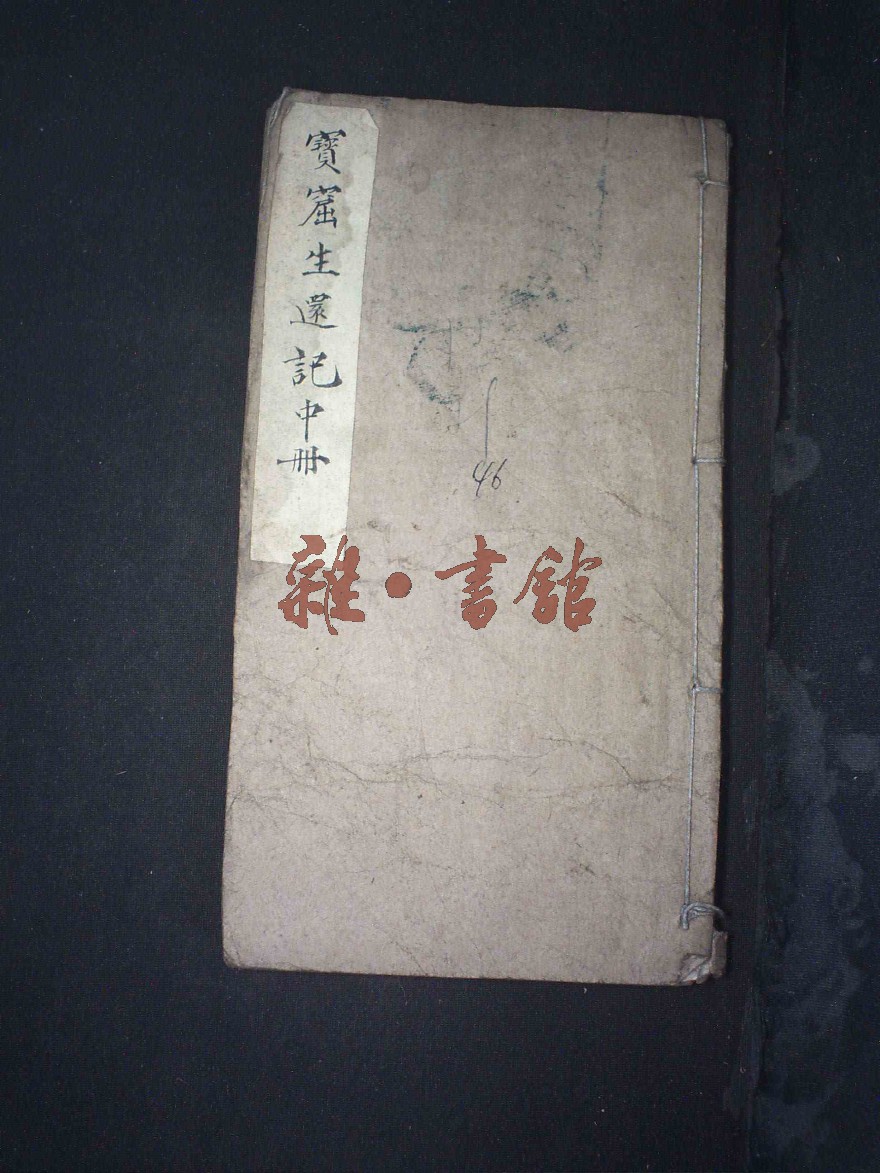 寶窟生還記中冊
46
雜·書館